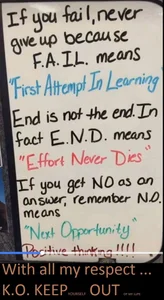 If you fail, never
give up because
F.A.I.L. means
"First Attempt In Learning"
End is not the end. In
fact E.N.D. means
"Effort Never Dies"
If you get NO as an
answer, remember N.O.
means
"Next Opportunity"
Positive thinking!!!!
With all my respect ...
K.O. KEEP OUT